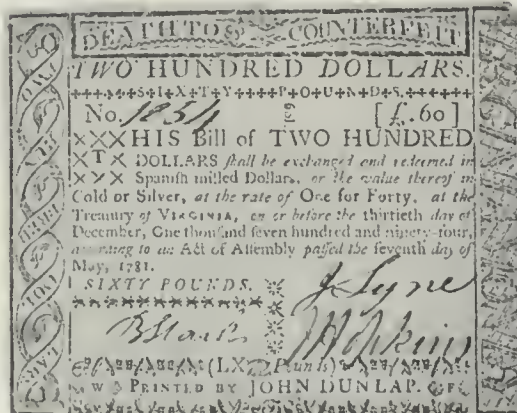 DEATH TO COUNTERFEIT
TWO HUNDRED DOLLARS.
S+I+X+T+Y P+O+U+N+D+S.
No. 1854 [£.60]
HIS Bill of TWO HUNDRED
T DOLLARS shall be exchanged and redeemed in
Spanish milled Dollars, or the value thereof in
Gold or Silver, at the rate of One for Forty, at the
Treasury of VIRGINIA, on or before the thirtieth day of
December, One thousand seven hundred and ninety-four,
according to an Act of Assembly passed the seventh day of
May, 1781.
SIXTY POUNDS.
J Lyne
B Stark
J Hopkins
(LX Pounds)
PRINTED BY JOHN DUNLAP.
TWO
HUN
DRED
DOL
LARS